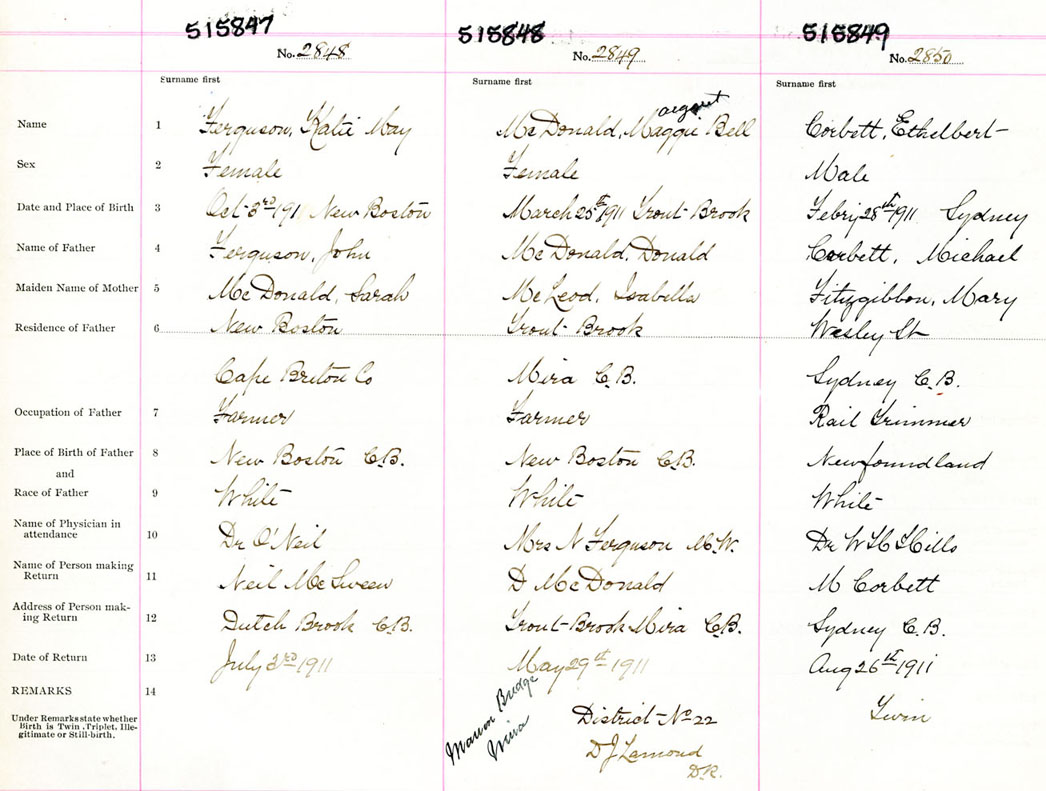 515847 515848 515849
No. 2848 No. 2849 No. 2850
Surname first Surname first Surname first
argaret
Name 1 Ferguson, Katie May McDonald, Maggie Bell Corbett, Ethelbert
Sex 2 Female Female Male
Date and Place of Birth 3 Oct 3rd 191 New Boston March 25th 1911 Trout Brook Febry 28th 1911 Sydney
Name of Father 4 Ferguson, John McDonald, Donald Corbett, Michael
Maiden Name of Mother 5 McDonald, Sarah McLeod, Isabella Fitzgibbon, Mary
Residence of Father 6 New Boston Trout Brook Wesley St
Cape Breton Co Mira C.B. Sydney C.B.
Occupation of Father 7 Farmer Farmer Rail Trimmer
Place of Birth of Father 8 New Boston C.B. New Boston C.B. Newfoundland
and
Race of Father 9 White White White
Name of Physician in
attendance 10 Dr O'Neil Mrs N Ferguson M.W. Dr W H Hills
Name of Person making
Return 11 Neil McSween D McDonald M Corbett
Address of Person mak-
ing Return 12 Dutch Brook C.B. Trout Brook Mira C.B. Sydney C.B.
Date of Return 13 July 3rd 1911 May 29th 1911 Aug 26th 1911
REMARKS 14 Twin
Under Remarks state whether
Birth is Twin, Triplet, Ille-
gitimate or Still-birth.
Marion Bridge
Mira
District No 22
D J Lamond
D.R.